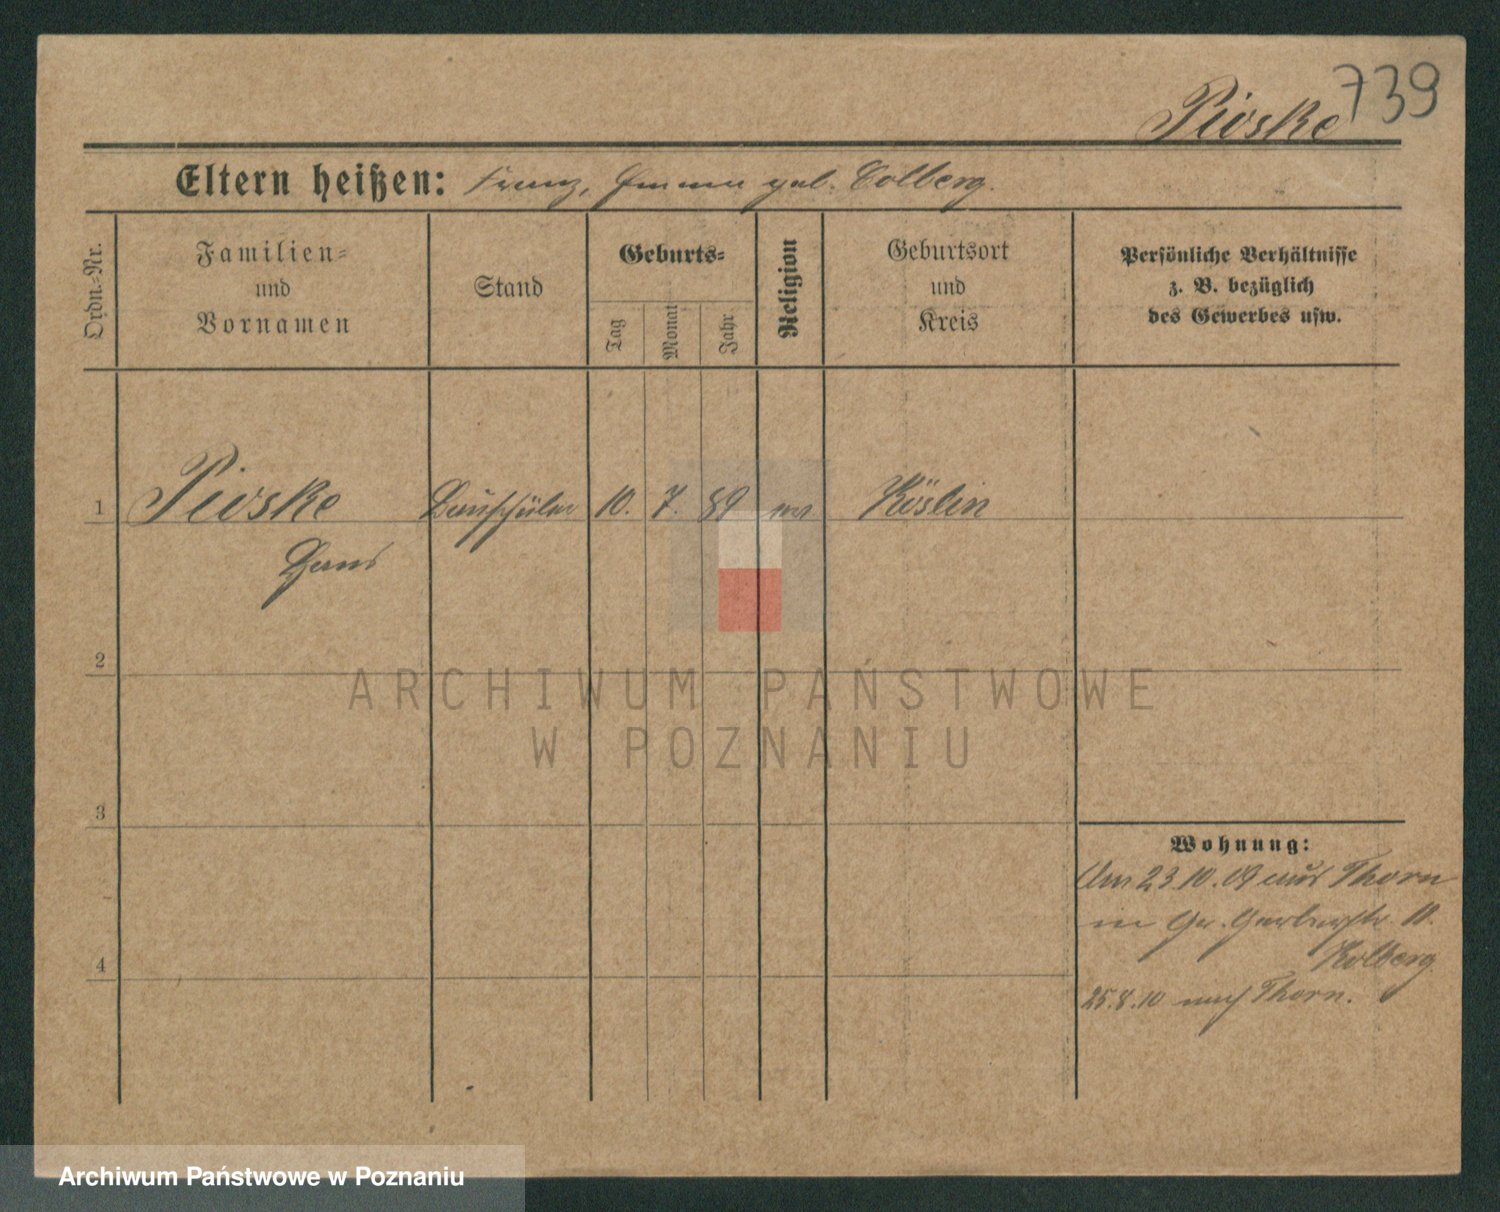 739
Pioske
Eltern heißen: Franz, Emma geb. Colberg.
Ordn.-Nr.
Familien-
und
Vornamen
Stand
Geburts-
Tag
Monat
Jahr
Religion
Geburtsort
und
Kreis
Persönliche Verhältnisse
z. B. bezüglich
des Gewerbes usw.
1 Pioske Bauschüler 10. 7. 89 Köslin
Hans
2
3
4
Wohnung:
Am 23.10.09 aus Thorn
in Gr. Gerberstr. 11.
Kolberg
25.8.10 nach Thorn.
ARCHIWUM PAŃSTWOWE
W POZNANIU
Archiwum Państwowe w Poznaniu